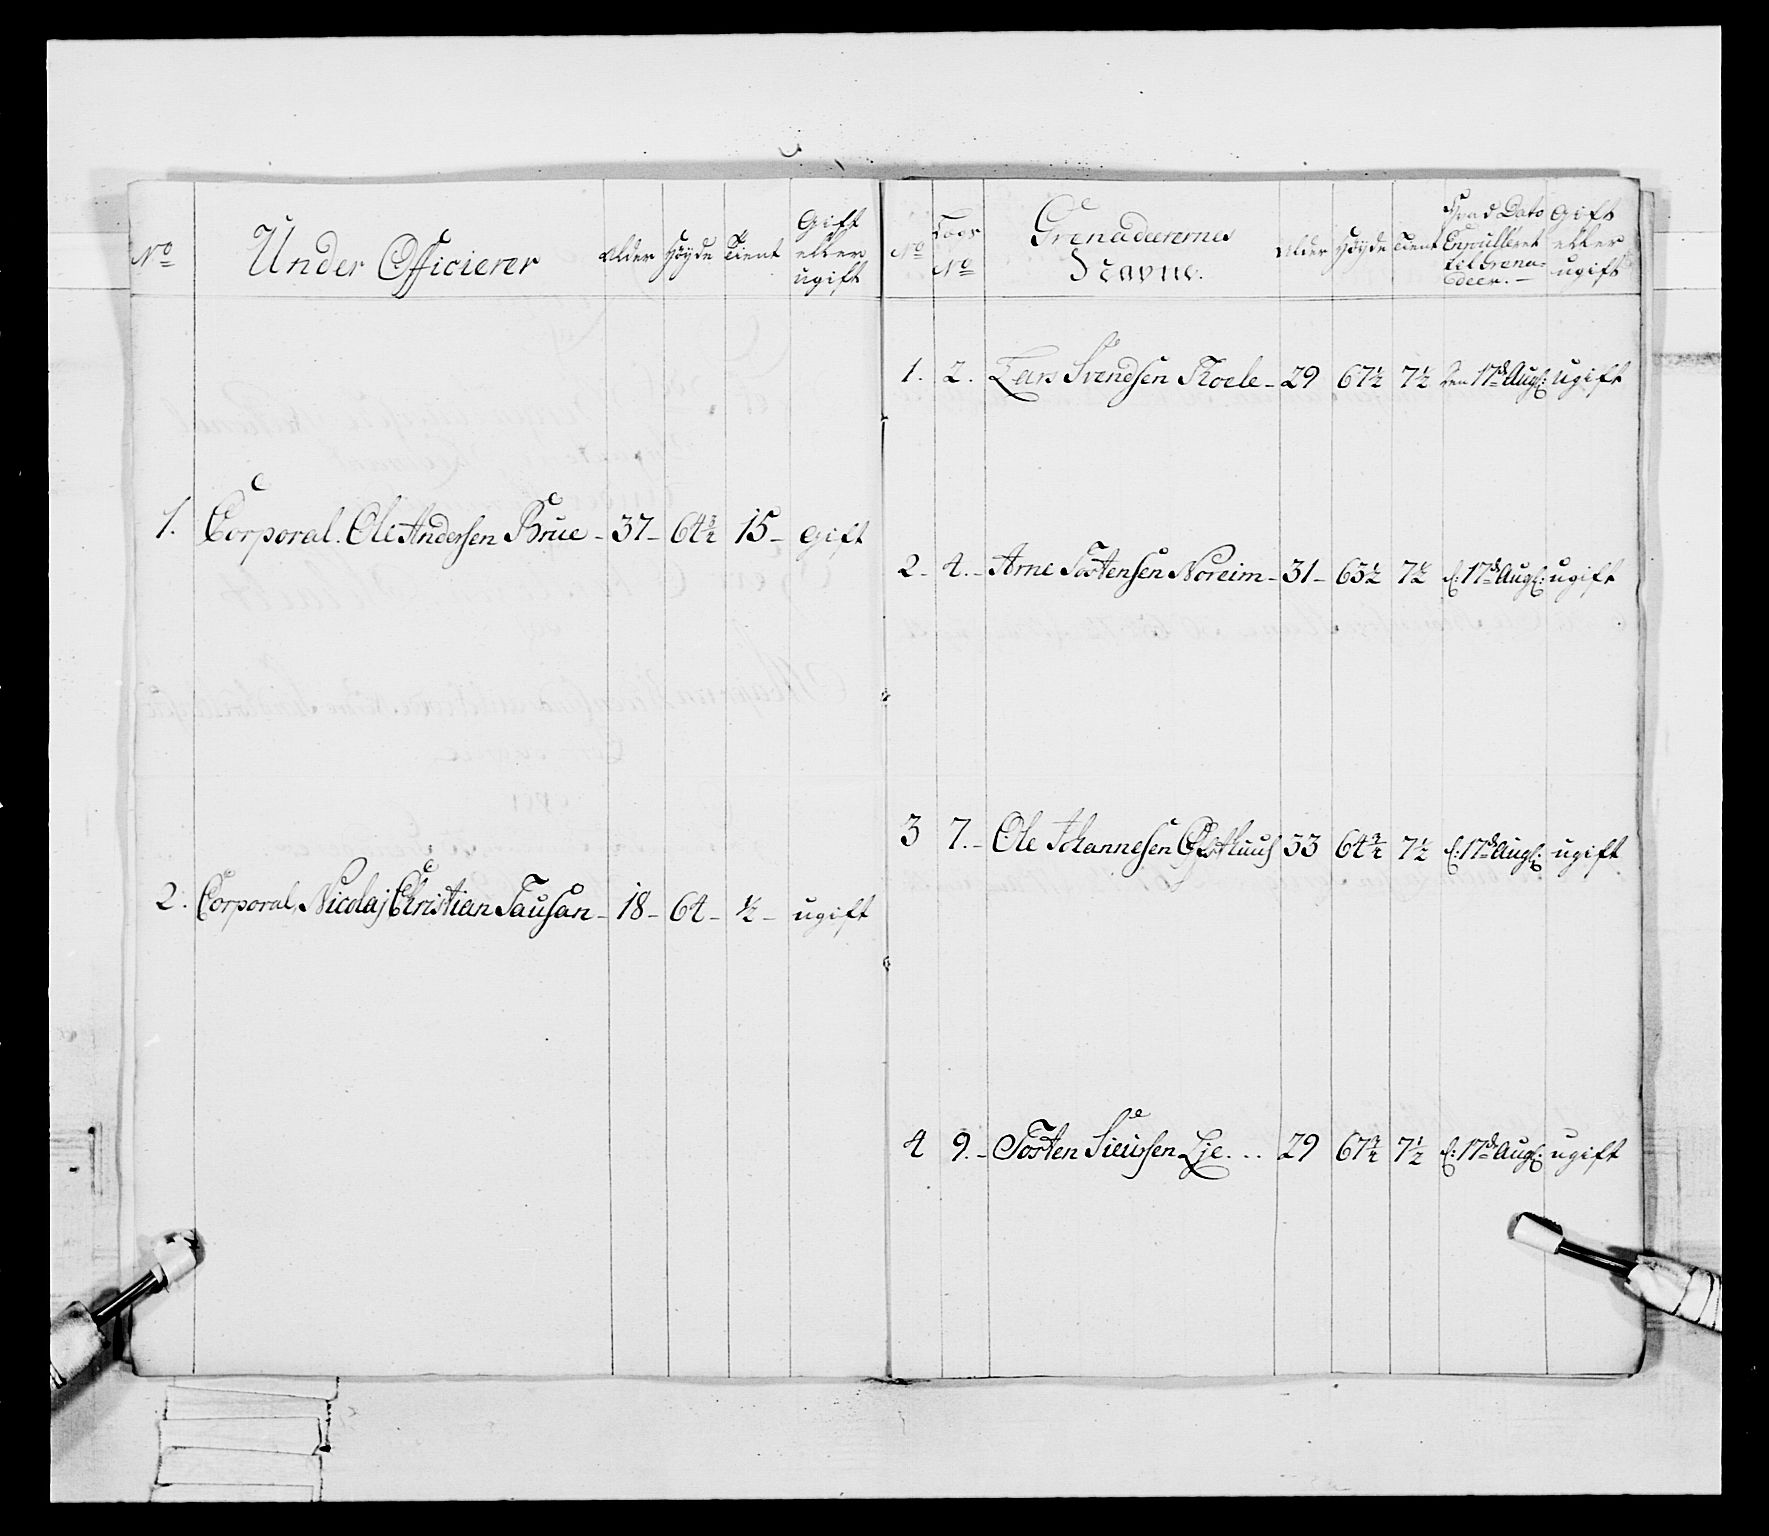 No Under Officierer Alder Høyde Tient Gift eller ugift
1. Corporal. Ole Andersen Brue - 37 - 64 3/4 15 - Gift
2. Corporal, Nicolaj Christian Tausan - 18 - 64 - 1/2 - ugift
No Laegs No Grenadeerernes Navne. Alder Høyde Tient Hvad Dato Enrulleret til Grenadeer. - Gift eller ugift
1. 2. Lars Svendsen - 29 67 1/2 7 1/2 den 17de Aug: ugift
2 - 4. - Arne Tostensen Noreim - 31 - 63 1/2 7 1/2 d: 17de Aug: ugift
3 7. - Ole Johannesen 33 64 3/4 7 1/2 d: 17de Aug: ugift
4 9. - Tosten Sieursen Lje . . . 29 67 3/4 7 1/2 d: 17de Aug: ugift